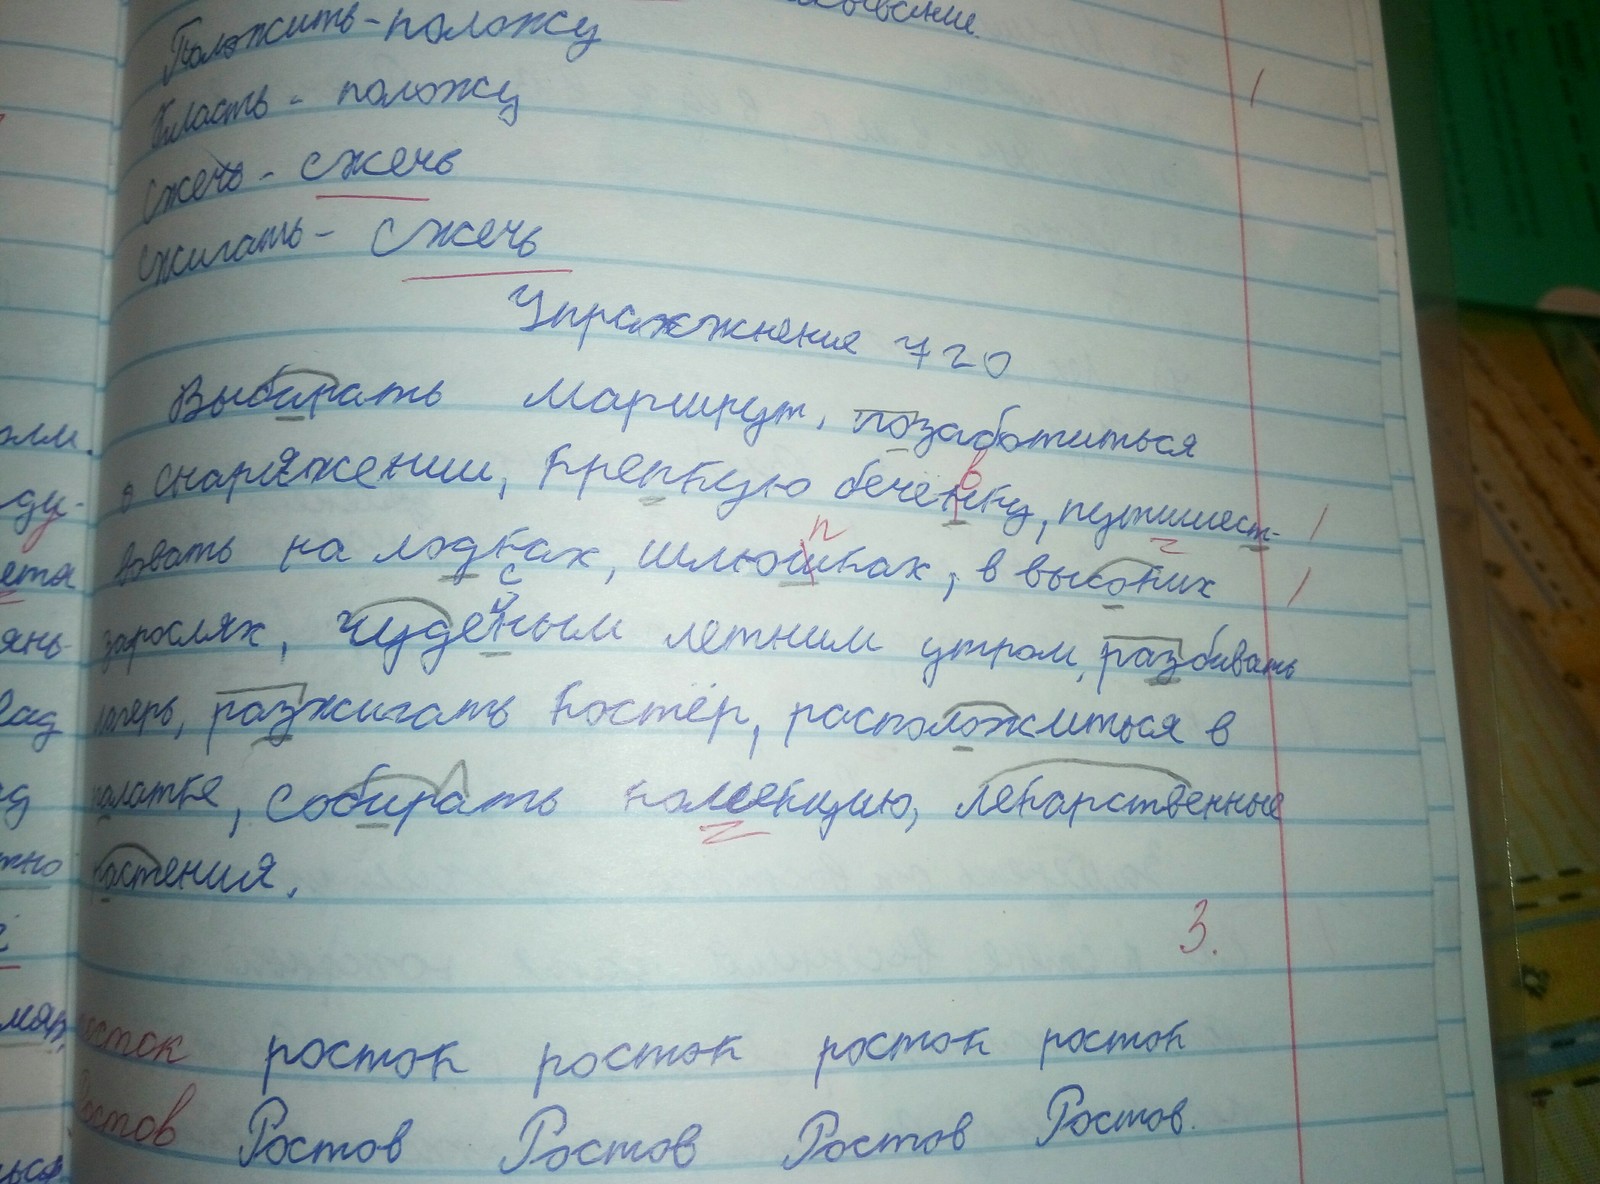 Положить - положу
Класть - положу
Сжечь - сжечь
Сжигать - сжечь
Упражжнение 720
Выбирать маршрут, позаботиться
о снаряжении, крепкую бечёвку, путишест-
вовать на лодках, шлюпках, в высоких
зарослях, чудесным летним утром, разбивать
лагерь, разжигать костёр, расположиться в
палатке, собирать коллекцию, лекарственные
растения.
3.
росток росток росток росток росток
Ростов Ростов Ростов Ростов Ростов.